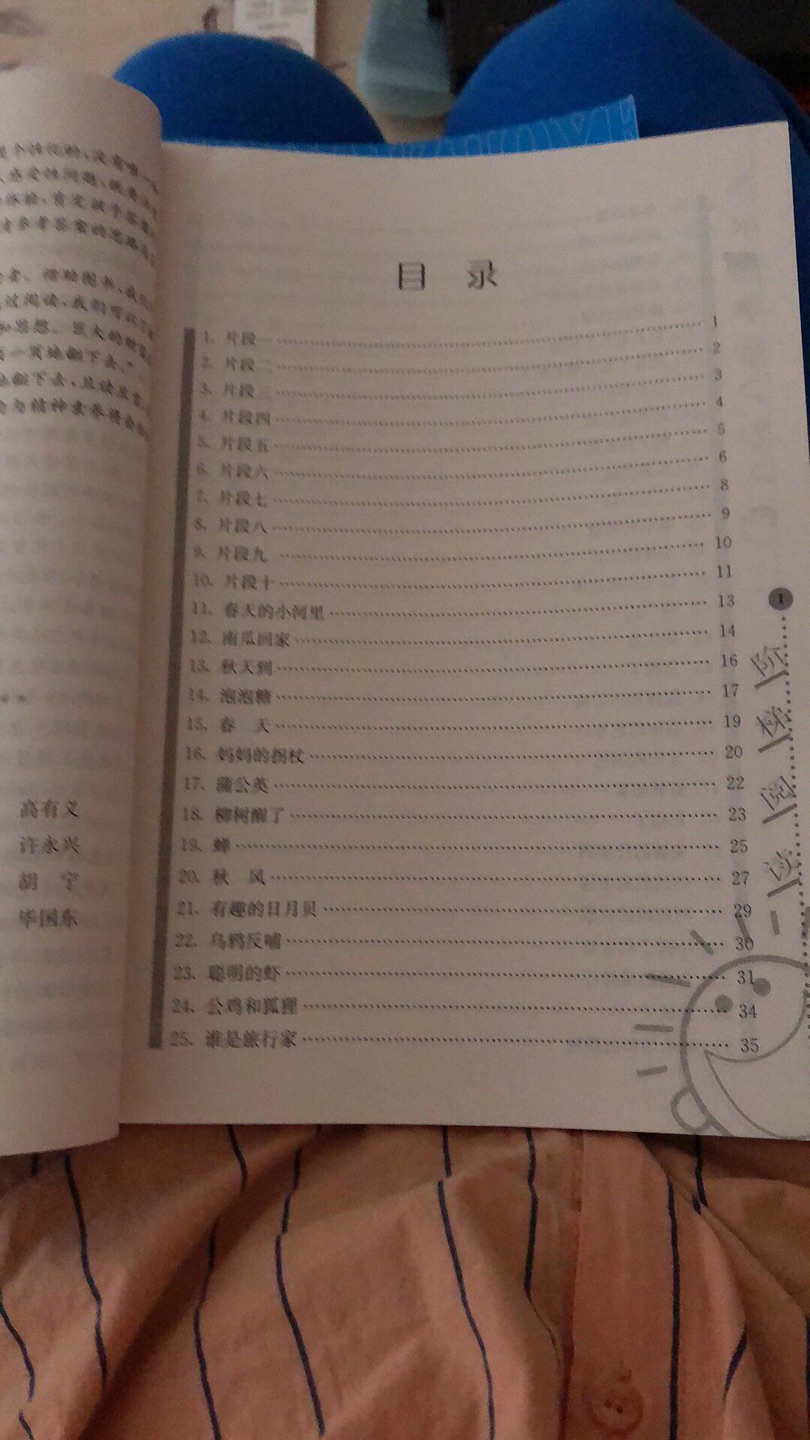 个性化的,没有唯一
感受性问题,就要
体验,肯定
参考答案的思路
者。借助图书,我们
过阅读,我们可以了
思想。巨大的财富
一页地翻下去。"
地翻下去,且读且
与精神素养将会
高有义
许永兴
胡 宁
毕国东
目 录
1. 片段一 1
2. 片段二 2
3. 片段三 3
4. 片段四 4
5. 片段五 5
6. 片段六 6
7. 片段七 8
8. 片段八 9
9. 片段九 10
10. 片段十 11
11. 春天的小河里 13
12. 南瓜回家 14
13. 秋天到 16
14. 泡泡糖 17
15. 春 天 19
16. 妈妈的拐杖 20
17. 蒲公英 22
18. 柳树醒了 23
19. 蝉 25
20. 秋 风 27
21. 有趣的日月贝 29
22. 乌鸦反哺 30
23. 聪明的虾 31
24. 公鸡和狐狸 34
25. 谁是旅行家 35
1
阶
梯
阅
读